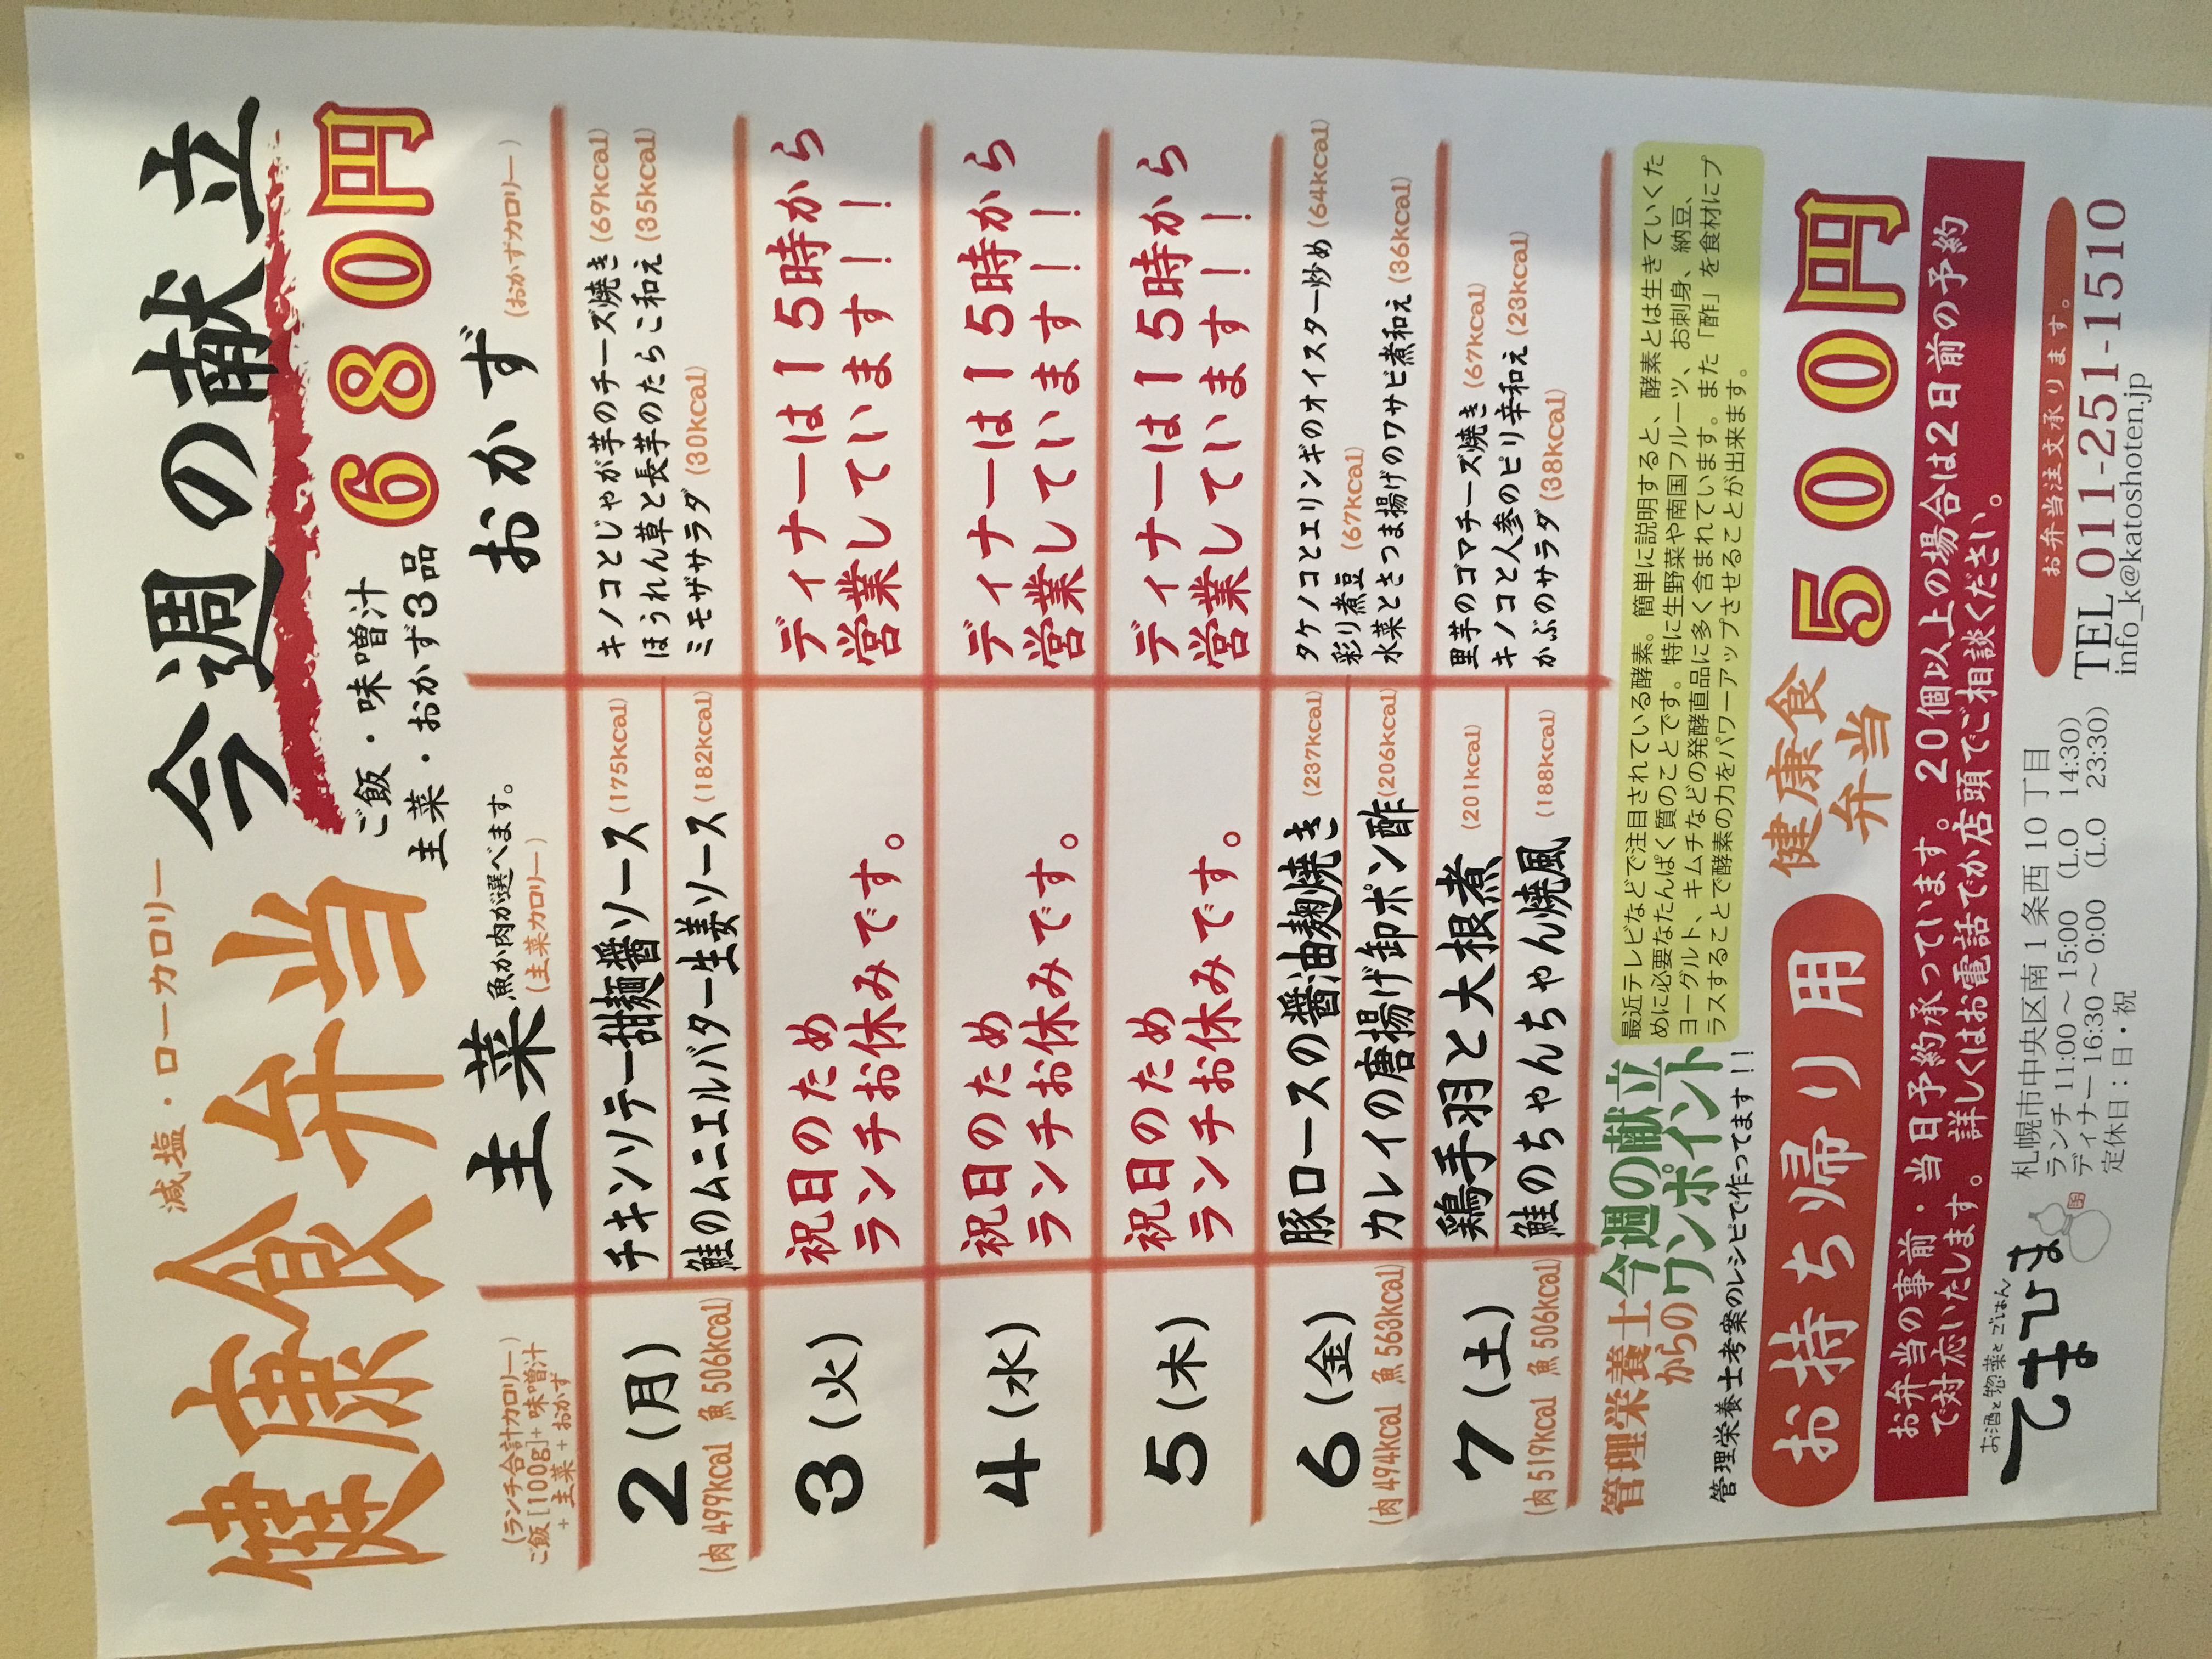 減塩・ローカロリー
健康食弁当
今週の献立
ご飯・味噌汁
主菜・おかず3品
680円
(ランチ合計カロリー)
ご飯[100g]+味噌汁
+主菜+おかず
主菜 魚か肉が選べます。
(主菜カロリー)
おかず (おかずカロリー)
2(月)
(肉 499kcal 魚 506kcal)
チキンソテー甜麺醤ソース (175kcal)
鮭のムニエルバター生姜ソース (182kcal)
キノコとじゃが芋のチーズ焼き (69kcal)
ほうれん草と長芋のたらこ和え (35kcal)
ミモザサラダ (30kcal)
3(火)
祝日のため
ランチお休みです。
ディナーは15時から
営業しています！！
4(水)
祝日のため
ランチお休みです。
ディナーは15時から
営業しています！！
5(木)
祝日のため
ランチお休みです。
ディナーは15時から
営業しています！！
6(金)
(肉 494kcal 魚 563kcal)
豚ロースの醤油麹焼き (237kcal)
カレイの唐揚げ卸ポン酢 (206kcal)
タケノコとエリンギのオイスター炒め (64kcal)
彩り煮豆 (67kcal)
水菜とさつま揚げのワサビ煮和え (36kcal)
7(土)
(肉 519kcal 魚 506kcal)
鶏手羽と大根煮 (201kcal)
鮭のちゃんちゃん焼風 (188kcal)
里芋のゴマチーズ焼き (67kcal)
キノコと人参のピリ辛和え (23kcal)
かぶのサラダ (38kcal)
管理栄養士からの今週の献立ワンポイント
管理栄養士考案のレシピで作ってます！！
最近テレビなどで注目されている酵素。簡単に説明すると、酵素とは生きていくた
めに必要なたんぱく質のことです。特に生野菜や南国フルーツ、お刺身、納豆、
ヨーグルト、キムチなどの発酵直品に多く含まれています。また「酢」を食材にプ
ラスすることで酵素の力をパワーアップさせることが出来ます。
お持ち帰り用
健康食
弁当
500円
お弁当の事前・当日予約承っています。20個以上の場合は2日前の予約
で対応いたします。詳しくはお電話でか店頭でご相談ください。
お酒と惣菜とごはん
てまひま
札幌市中央区南1条西10丁目
ランチ 11:00～15:00 (L.O 14:30)
ディナー 16:30～0:00 (L.O 23:30)
定休日：日・祝
お弁当注文承ります。
TEL 011-251-1510
info_k@katoshoten.jp